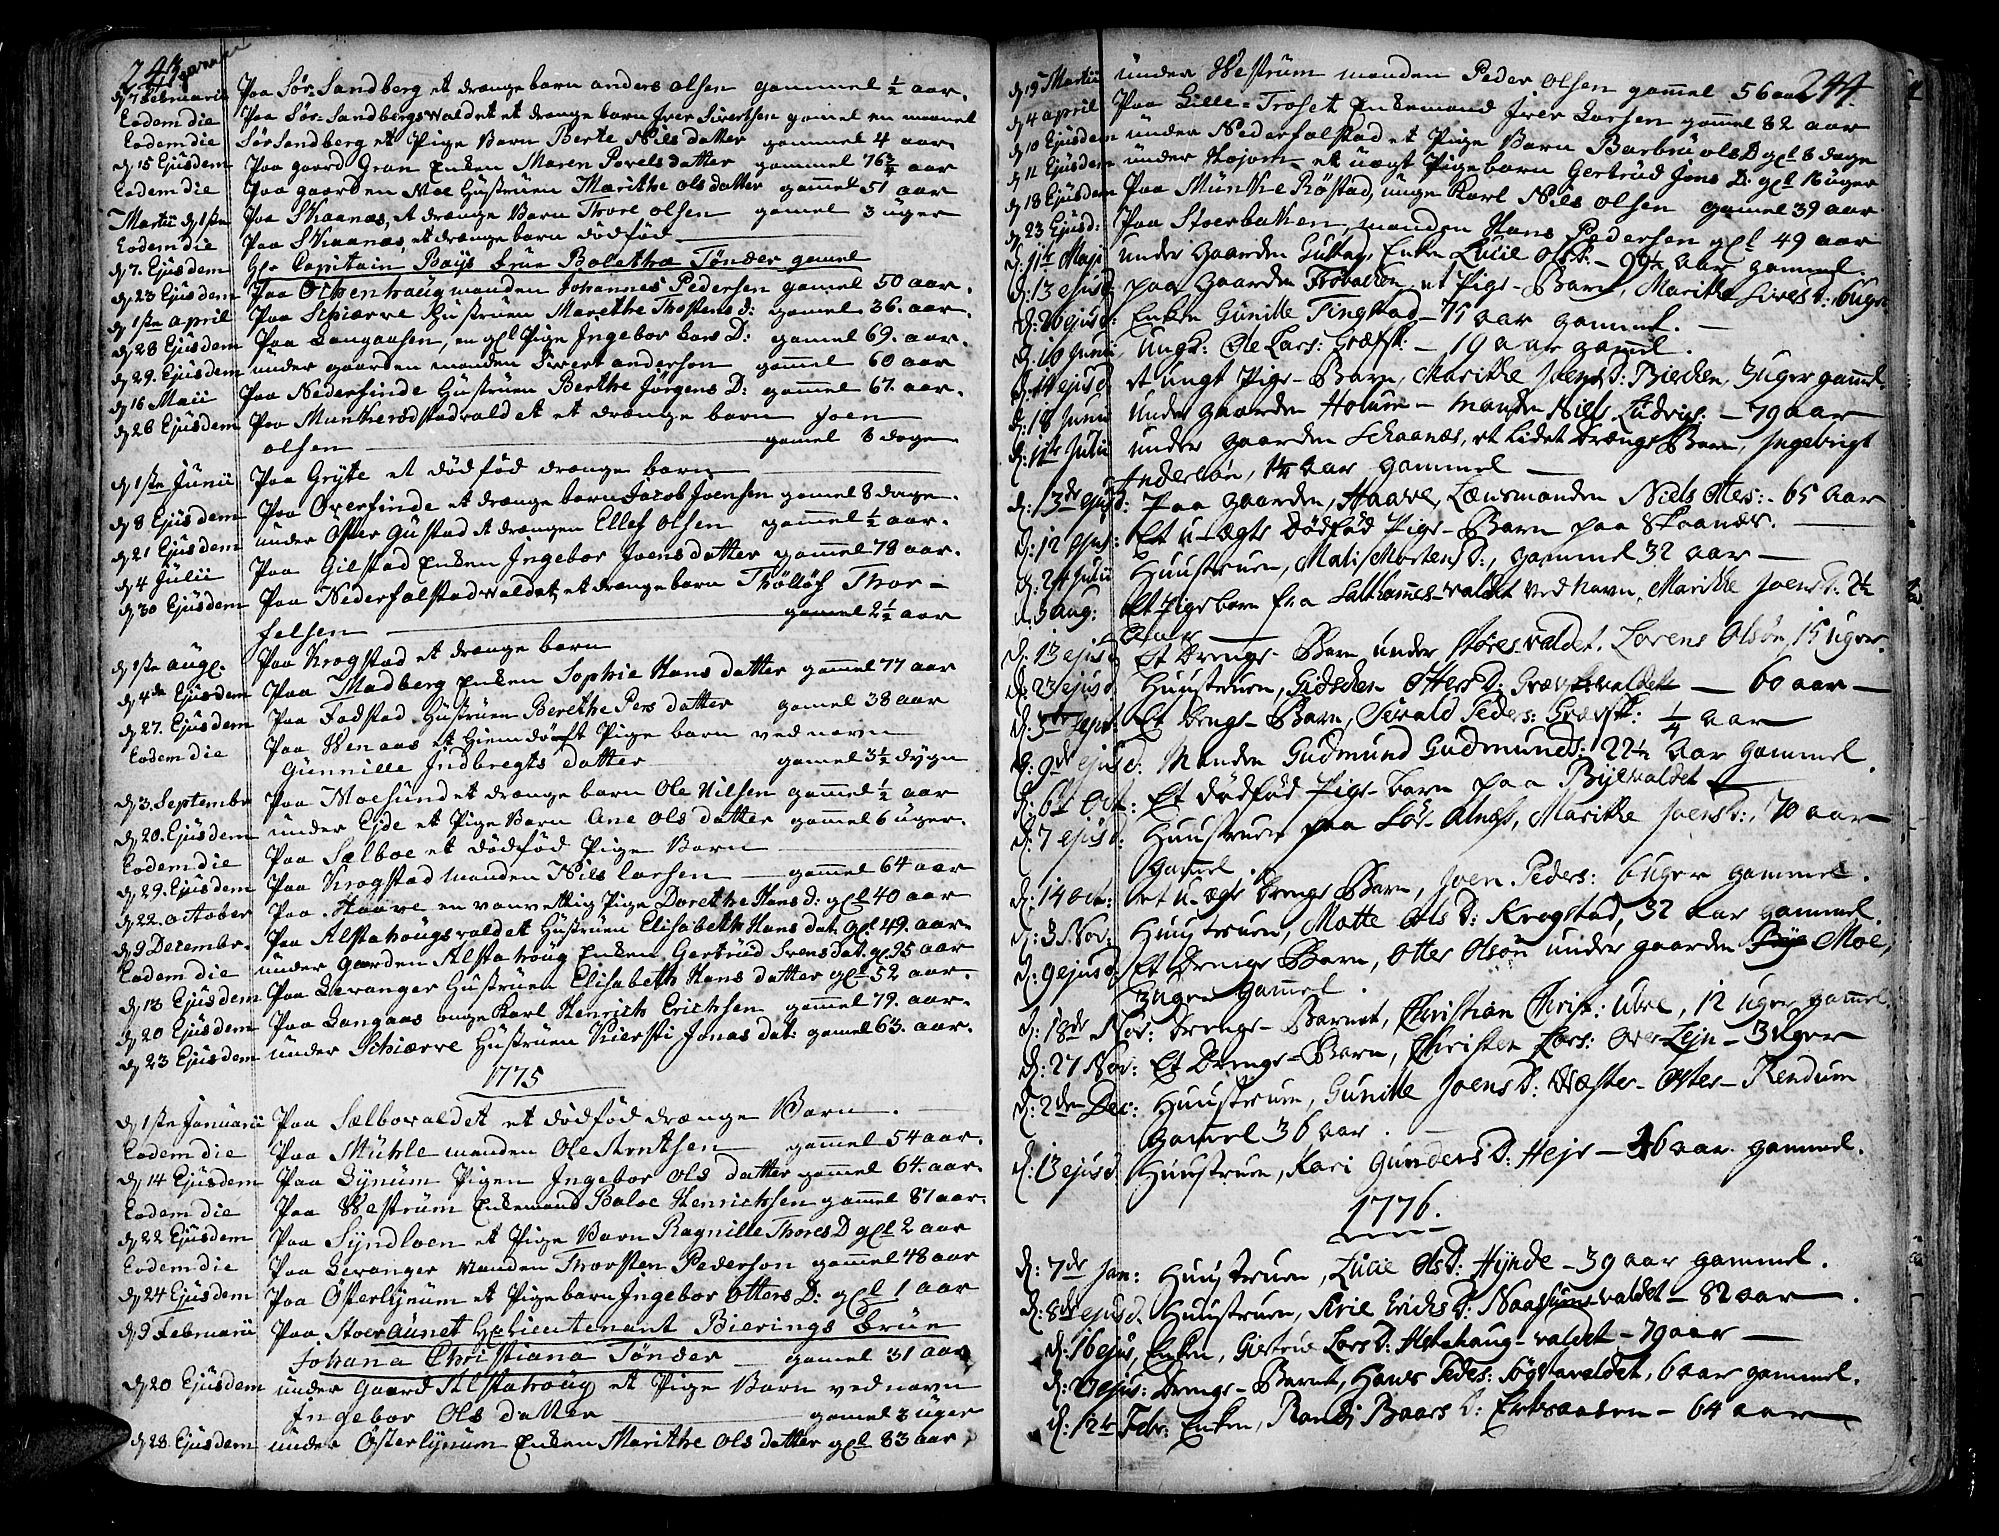 243
d 7 Februarii Paa Sør Sandberg et drænge barn anders olsen gammel ½ aar.
Eodem die Paa Sør. Sandbergs waldet et drænge barn Iver Sivertsen gamel en maanet
Eodem die Sør Sandberg et Pige Barn Berte Nils datter gammel 4 aar.
d 15 Ejusdem Paa gaard Gran Enken Maren Povels datter gammel 76¾ aar
Eodem die Paa gaarden Moe Hustruen Marithe ols datter gammel 51 aar
Martii d 1ste Paa Skaanæs, et drænge Barn Thore olsen gamel 3 uger
Eodem die Paa Skaanæs, et drænge barn dødfød
d 7. Ejusdem Hr Capitain Bays frue Boletha Tønder gamel
d 23 Ejusdem Paa Olsenhaug manden Johannes Pedersen gamel 50 aar.
d 1ste april Paa Schiærve Hustruen Marethe Thostens d: gamel 36. aar.
d 28 Ejusdem Paa Langaasen, en gl Pige Ingebor Lars D: gamel 69. aar.
d 29. Ejusdem under gaarden manden Sivert anderson gamel 60 aar
d 16 Maii Paa Nederfinde Hustruen Berthe Jørgens D: gamel 67. aar.
d 26 Ejusdem Paa Munkerødstadvaldet et drænge barn Joen
olsen gamel 8 dage
d 1ste Junii Paa Gryte et dødfød drænge barn
d 8 Ejusdem Paa Overfinde et drænge barn Jacob Joensen gamel 8 dage.
d 21 Ejusdem under Øster Gustad et drængen Ellef olsen gammel ½ aar.
d 4 Julii Paa Gilstad Enken Ingebor Joens datter gammel 78 aar.
d 30 Ejusdem Paa Nederfalstadwaldet et drænge barn Thøltøf Thor-
felsen gamel 2½ aar
d 1ste aug. Paa Krogstad et drænge barn
d 4de Ejusdem Paa Madberg Enken Sophie Hans datter gammel 77 aar
d 27. Ejusdem Paa Fodstad Hustruen Berethe Pers datter gamel 38 aar
Eodem die Paa Wenaas et Hiemdøbt Pige barn ved navn
Gunnille Indbregts datter gamel 3½ dygn
d 3. Septembr Paa Moesund et drænge barn Ole Nilsen gammel ½ aar
d 20. Ejusdem under Eyde et Pige Barn Ane Ols datter gammel 6 uger.
Eodem die Paa Sælboe et dødfød Pige Barn
d 29. Ejusdem Paa Krogstad manden Nils Larsen gammel 64 aar
d 22 october Paa Haave en vanvettig Pige Dorethe Hans d: gl 40 aar
d 9 Decembr. Paa Alstahougs valdet Hustruen Elisabeth Hans dat. gl 49. aar.
Eodem die under Gaarden Alstahoug Enken Gertrud Svens dat. gl 95 aar
d 13 Ejusdem Paa Levanger Hustruen Elisabeth Hans datter gl 52 aar.
d 20 Ejusdem Paa Langaas unge Karl Henrich Erichsen gammel 79. aar.
d 23 Ejusdem under Schiærve Hustruen Kiersti Jonas dat: gamel 63. aar.
1775
d 1ste Januarii Paa Sælbovaldet et dødfød drænge Barn.
Eodem die Paa Mühle manden Ole Arntsen gammel 54 aar.
d 14 Ejusdem Paa Lynum Pigen Ingebor Ols datter gammel 64. aar.
Eodem die Paa Westrum Enkemand Baloe Henrichsen gammel 87 aar.
d 22 Ejusdem Paa Lyndloen et Pige Barn Ragnille Thores D gl 2 aar
Eodem die Paa Levanger Manden Thorsten Pederson gammel 48 aar
d 24 Ejusdem Paa Østerlynum et Pige barn Ingebor Otters D: gl 1 aar
d 9 Februarii Paa Stoeraunet Hr Lieutenant Bierings Frue
Johana Christiana Tønder gamel 31 aar
d 20 Ejusdem under Gaard Alstahoug et Pige Barn ved navn
Ingebor Ols datter gamel 3 uger
d 28 Ejusdem under Østerlynum Enken Marithe Ols datter gl 83 aar
244.
d 19 Martii under Westrum manden Peder Olsen gamel 56 aar
d 4 april Paa Gille-Troset Enkemand Iver Larsen gamel 82 aar
d 10 Ejusdem under Nederfalstad et Pige Barn Barbru ols D gl 8 dage
d 11 Ejusdem under Hojem et uægt Pigebarn Gertrud Jens D: gl 16 uger
d 18 Ejusdem Paa Munkke Røstad, unge Karl Nils Olsen gamel 39 aar.
d 23 Ejusd: Paa Stoerbakken, manden Hans Pedersen gl 49 aar
d: 1te Maji under gaarden Gustad, Enke Lucie Ols D. - 99½ aar gammel.
d: 13 ejusd paa Gaarden Trøvalden et Pige-Barn, Marithe Sivers D: 6 Uger
d: 20 ejusd: Enken Gunille Tingstad - 75 aar gammel.
d: 10 Junii Ungd: Ole Lars: Grævsk: - 19 aar gammel.
d: 14 ejusd et ungt Pige-Barn, Marithe Joens D: Biecken, 3 uger gammel
d: 18 Junii Under gaarden Holum - manden Niels Ludvigs. - 79 aar
d: 1te Julii under gaarden Schaanæs, et lidet Drænge Barn, Ingebrigt
Andersøn, 1¼ aar gammel
d: 3de ejusd: Paa gaarden, Haave, Lænsmanden Niels Ottes: - 65 aar
d: 12 ejus: Et U-ægte Dødfød Pige-Barn paa Skaanæs.
d: 24 Julii Huustruen, Mali Mortens D:, gammel 32 aar
d: 5 aug: Et Pigebarn fra Salthames-valdet ved Navn, Marithe Joens D: 2½
aar
d: 13 ejusd Et Drenge-Barn under Støresvaldet. Lorens Olsøn, 15 Uger.
d: 23 ejusd Huustruen, Gidschen Otters D: Grævskvaldet - 60 aar
d: 5te Sept: Et Drenge-Barn, Sivald Peders: Grævsk: ¼ aar
d: 9de ejusd. Manden Gudmund Gudmunds: 22½ aar gammel.
d: 6te Oct: Et dødfød Pige-barn paa Byevaldet
d: 7 ejusd: Huustruen paa Sør-Alness, Marithe Joens D:, 70 aar
gammel.
d: 14 Oct: et U-ægte Drenge Barn, Joen Peders: 6 Uger gammel.
d: 3 Nov: Huustruen, Mette Ols D: Krogstad, 32 aar gammel.
d: 9 ejusd Et Drenge Barn, Otter Olsøn under gaarden Moe,
3 Uger gammel.
d: 18de Nov: Drenge-Barnet, Christian Christ: Uhre, 12 Uger gammel
d: 27 Nov: Et Drenge-Barn, Christen Lars: Over Lejn - 3 Uger
d: 2den Dec: Huustruen, Gunille Joens D. Wæster-Øster-Rendum
gammel 36 aar.
d: 13 ejusd: Huustruen, Kari Gunders D: Heje - 46 aar gammel.
1776.
d: 7de Jan: Huustruen, Lucie Ols D: Hynde - 39 aar gammel.
d: 8de ejusd. Huustruen, Sirie Erichs D: Naassunsvaldet - 82 aar.
d: 16 ejus, Enken, Giertrue Lars D: Alstahaug-valdet - 79 aar
d: 23 ejus: Drenge-Barnet, Hans Peders: Søgstavaldet, 6 aar gammel.
d: 12te Febr: Enken, Randj Baars D: Eekraalen - 64 aar